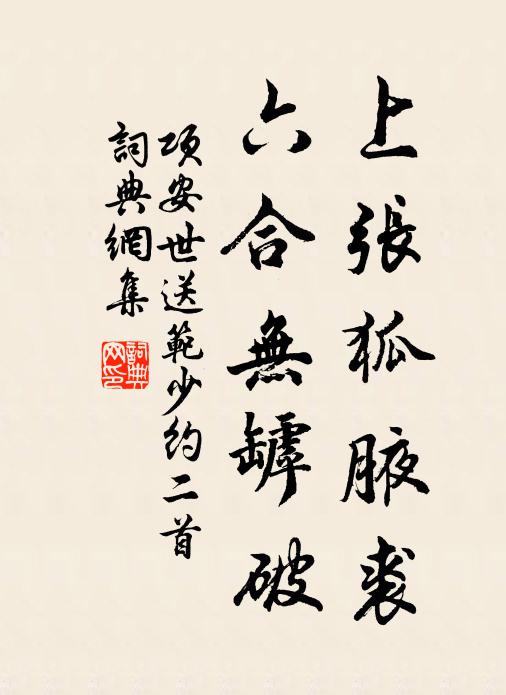 上張狐腋裘
六合無罅破
項安世送範少約二首
詞典網集
詞典
网印